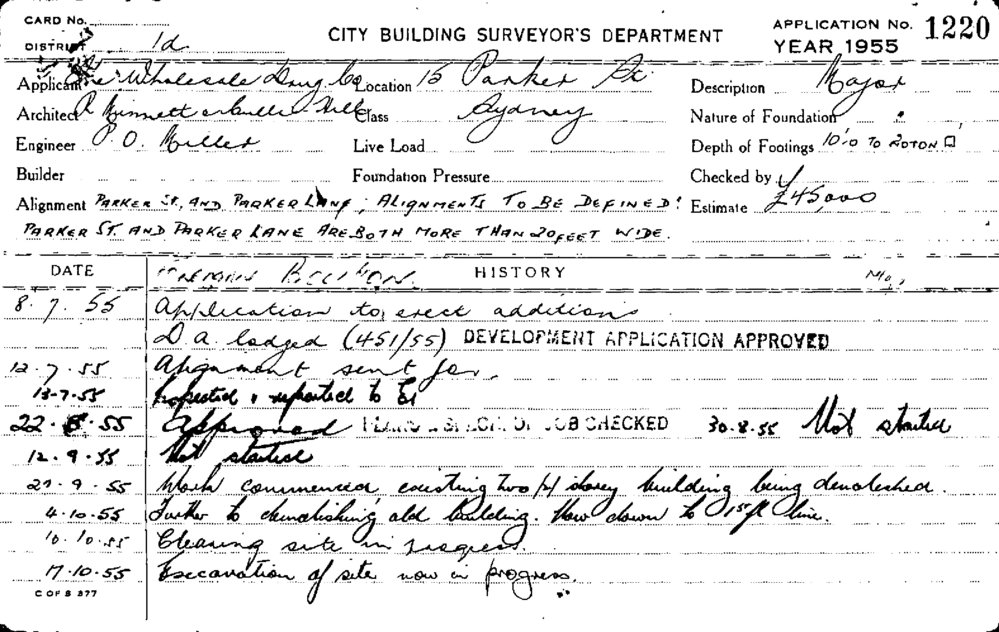 CARD No.
DISTRICT 1d
CITY BUILDING SURVEYOR'S DEPARTMENT
APPLICATION No. 1220
YEAR 1955
Applicant The Wholesale Drug Co Location 15 Parker St Description Major
Architect Class Sydney Nature of Foundation
Engineer P.O. Miller Live Load Depth of Footings 10'0 TO
Builder Foundation Pressure Checked by
Alignment PARKER ST. AND PARKER LANE; ALIGNMENTS TO BE DEFINED. Estimate £45,000
PARKER ST. AND PARKER LANE ARE BOTH MORE THAN 20 FEET WIDE.
DATE HISTORY
8.7.55 Application to erect additions
D.A. lodged (451/55) DEVELOPMENT APPLICATION APPROVED
12.7.55 Alignment sent for.
13-7-55 Inspected & reported to
22.8.55 Approved PLANS & SPECN. OF JOB CHECKED 30.8.55 Not started
12.9.55 Not started
27.9.55 Work commenced, existing two (2) storey building being demolished.
4.10.55 Further to demolishing old building. Now down to 1st fl line.
10.10.55 Clearing site in progress.
17.10.55 Excavation of site now in progress.
C OF S 877